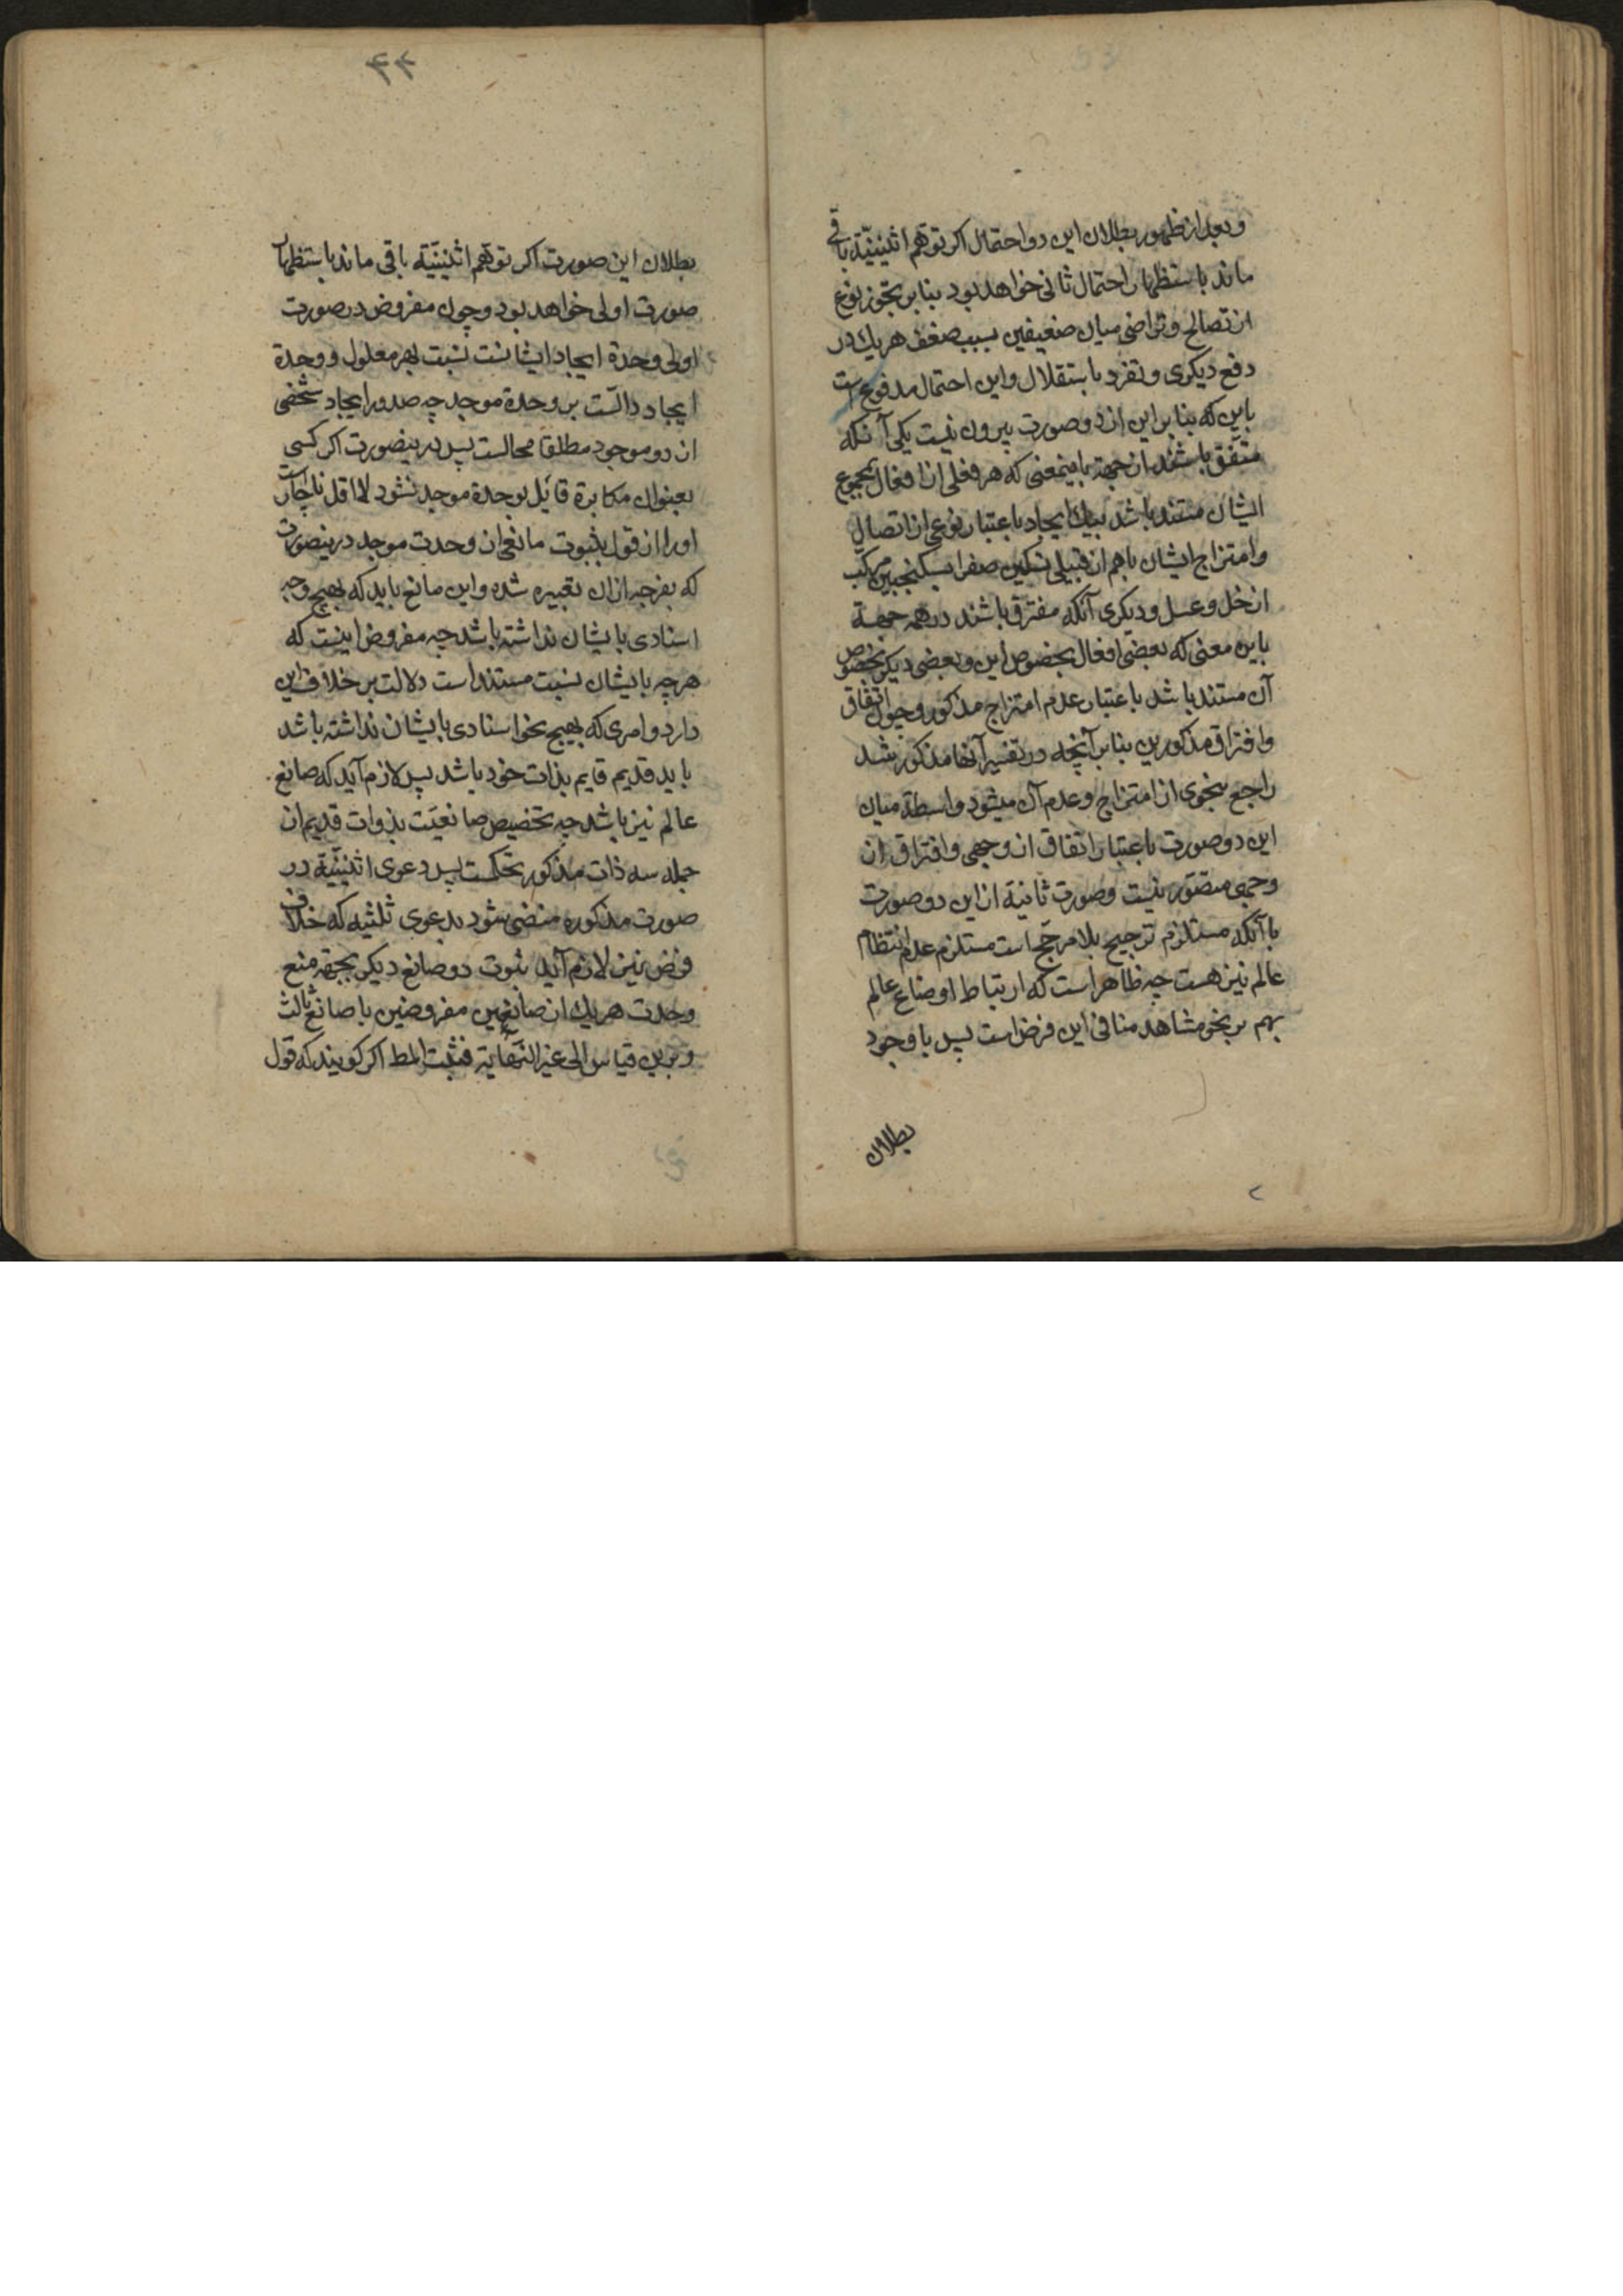 و بعد از ظهور بطلان این دو احتمال اکر توهم اثنینیّة باقی
ماند باستظهار احتمال ثانی خواهد بود بنابر تجوز نوع
از تصالح و تراضی میان ضعیفین بسبب ضعف هریک در
دفع دیکری و تفرد باستقلال و این احتمال مدفوع است
باین که بنابر این از دو صورت بیرون نیست یکی آنکه
متفق باشند از جهة باینمعنی که هر فعلی از افعال بمجموع
ایشان مستند باشد بیک ایجاد باعتبار نوعی از اتصال
و امتزاج ایشان باهم از قبیل تسکین صفرا بسکنجبین مرکب
از خل و عسل و دیکری آنکه مفترق باشند در همه جهة
باین معنی که بعضی افعال بخصوص این و بعضی دیکر بخصوص
آن مستند باشد باعتبار عدم امتزاج مذکور و چون اتفاق
و افتراق مذکورین بنابر آنچه در تفسیر آنها مذکور شد
راجع بنحوی از امتزاج و عدم آن میشود واسطة میان
این دو صورت باعتبار اتفاق از وجهی و افتراق از
وجهی متصّور نیست و صورت ثانیة از این دو صورت
با آنکه مستلزم ترجیح بلا مرجّح است مستلزم عدم انتظام
عالم نیز هست چه ظاهر است که ارتباط اوضاع عالم
بهم بر نحو مشاهد منافی این فرض است پس با وجود
بطلان
۴۴
بطلان این صورت اکر توهّم اثنینیّة باقی ماند باستظهار
صورت اولی خواهد بود و چون مفروض در صورت
اولی وحدة ایجاد ایشانست نسبت بهر معلول و وحدة
ایجاد دالّست بر وحدة موجد چه صدور ایجاد شخصی
از دو موجود مطلقا محالست پس درینصورت اکر کسی
بعنوان مکابرة قائل بوحدة موجد نشود لااقل ناچار است
اورا از قول بثبوت مانعی از وحدت موجد درینصورت
که بفرجه ازان تعبیر شده و این مانع باید که بهیچ وجه
اسنادی بایشان نداشته باشد چه مفروض اینست که
هرچه بایشان نسبت مستند است دلالت بر خلاف این
دارد و امری که بهیچ نحو اسنادی بایشان نداشته باشد
باید قدیم قایم بذات خود باشد پس لازم آید که صانع
عالم نیز باشد چه تخصیص صانعیّت بذوات قدیم از
جمله سه ذات مذکور تحکمست پس دعوی اثنینیّة در
صورت مذکوره منضی شود بدعوی ثلثیه که خلاف
فرض نیز لازم آید ثبوت دو صانع دیکر بجهة منع
وحدت هریک از صانعین مفروضین با صانع ثالث
و برین قیاس الی غیر النهایة فثبت المط اکر کویند که قول